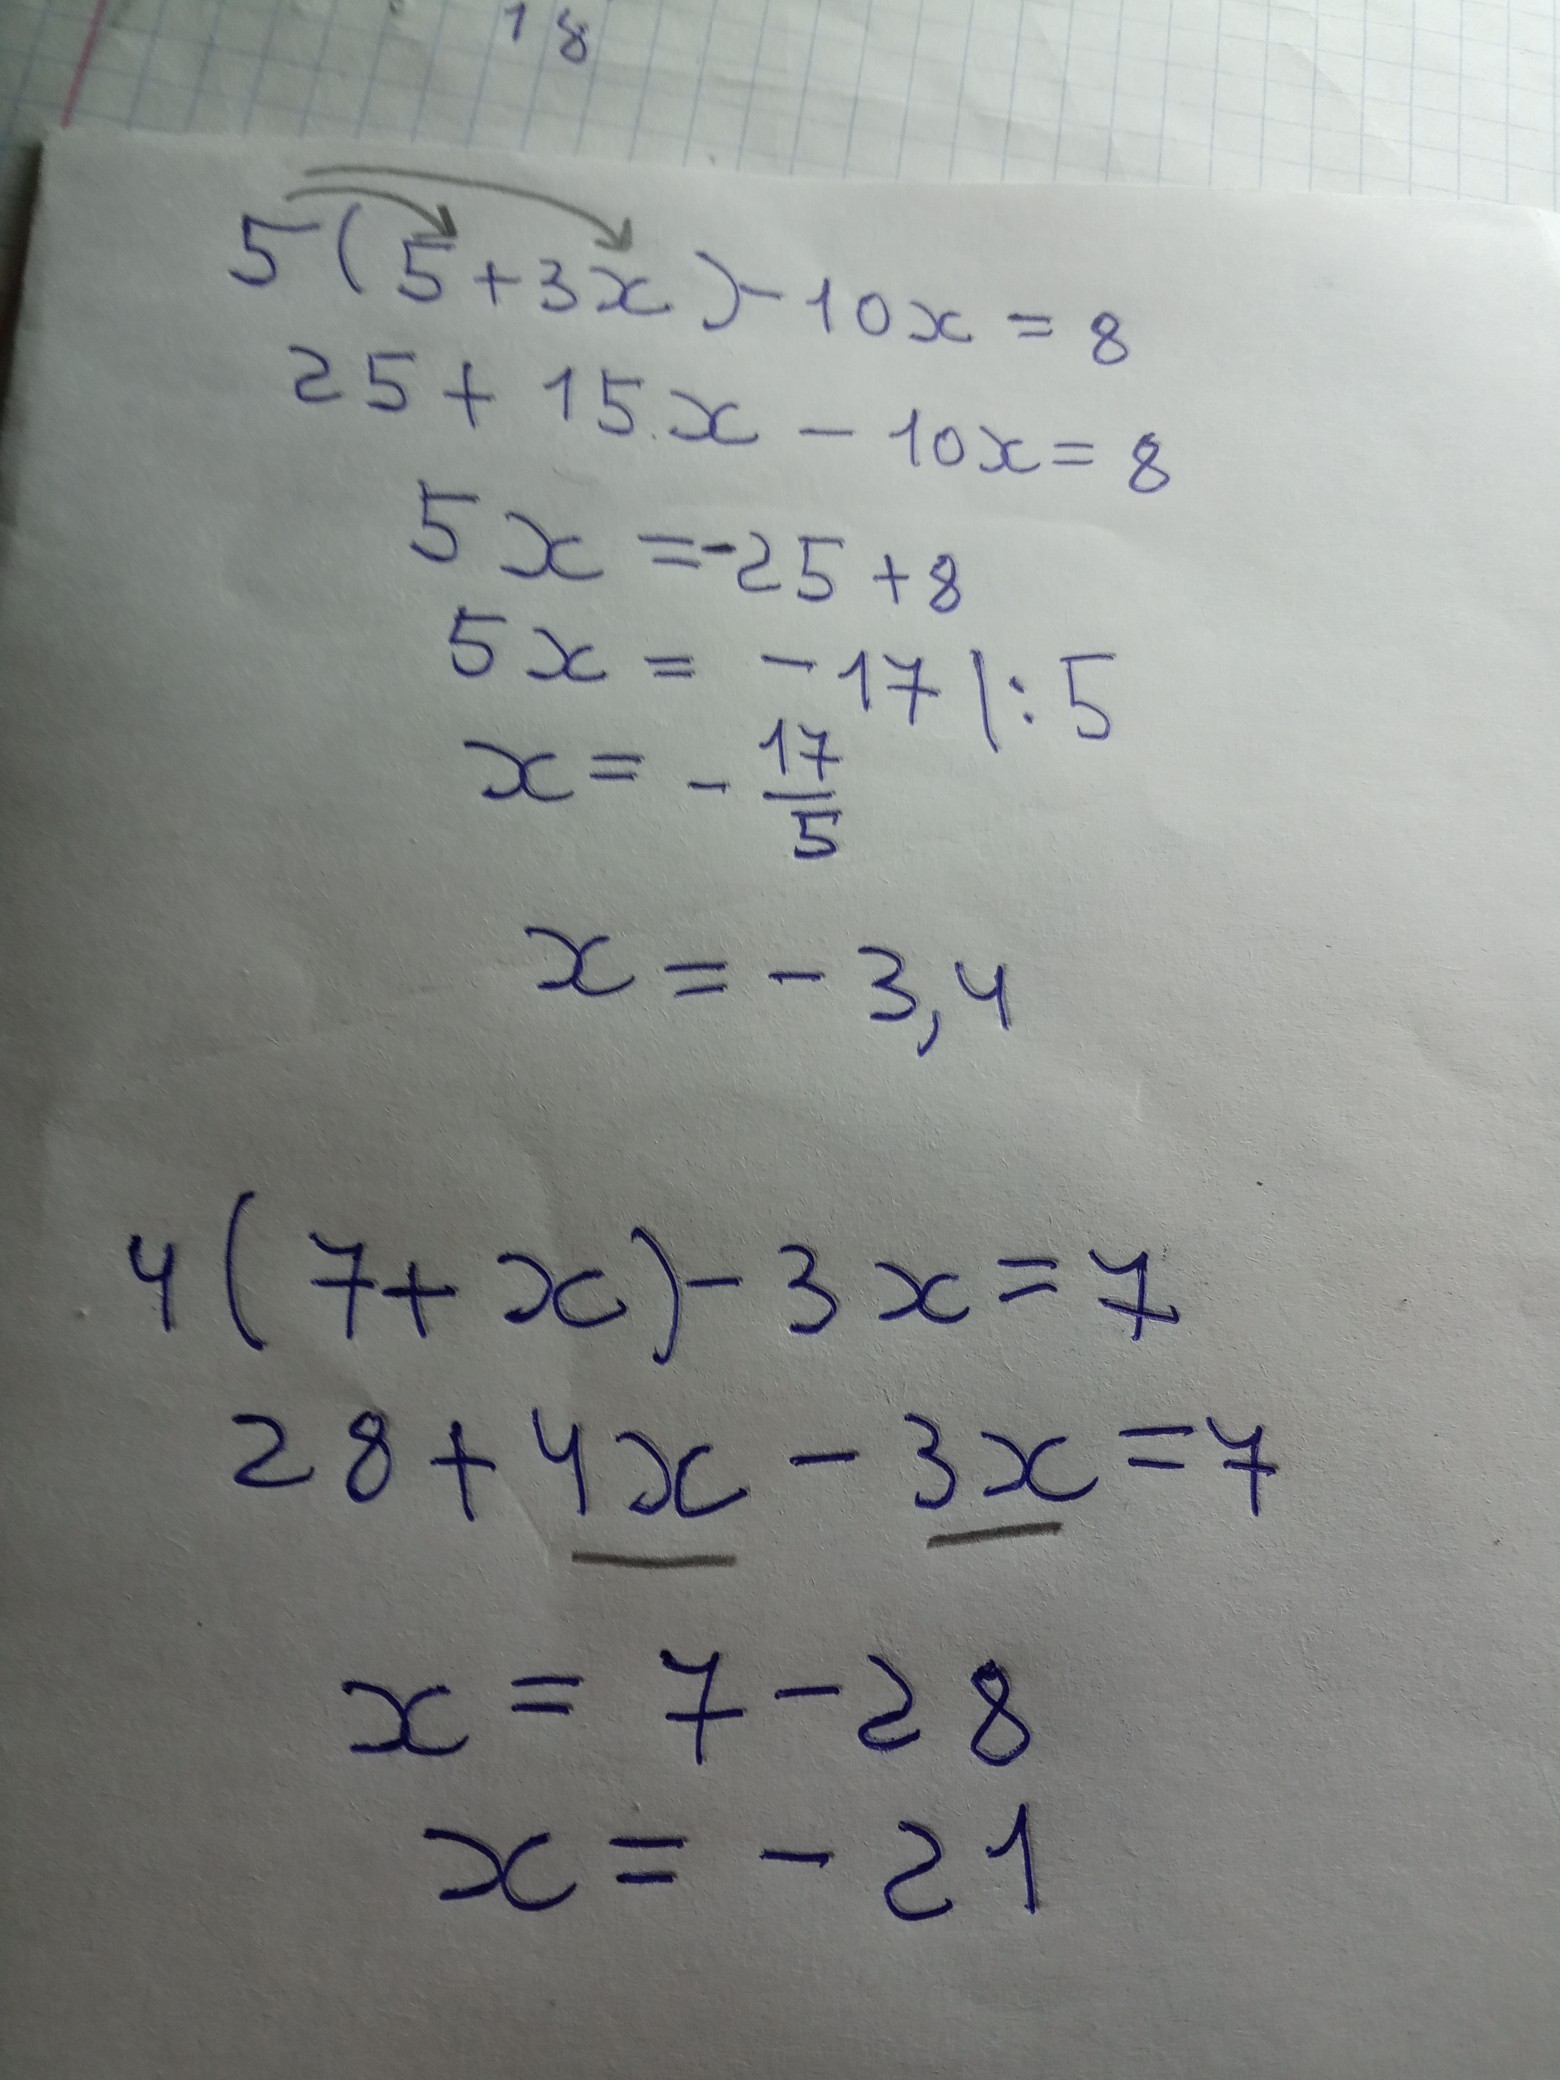 18
5(5+3x)-10x=8
25+15.x-10x=8
5x=-25+8
5x=-17|:5
x=-17/5
x=-3,4
4(7+x)-3x=7
28+4x-3x=7
x=7-28
x=-21